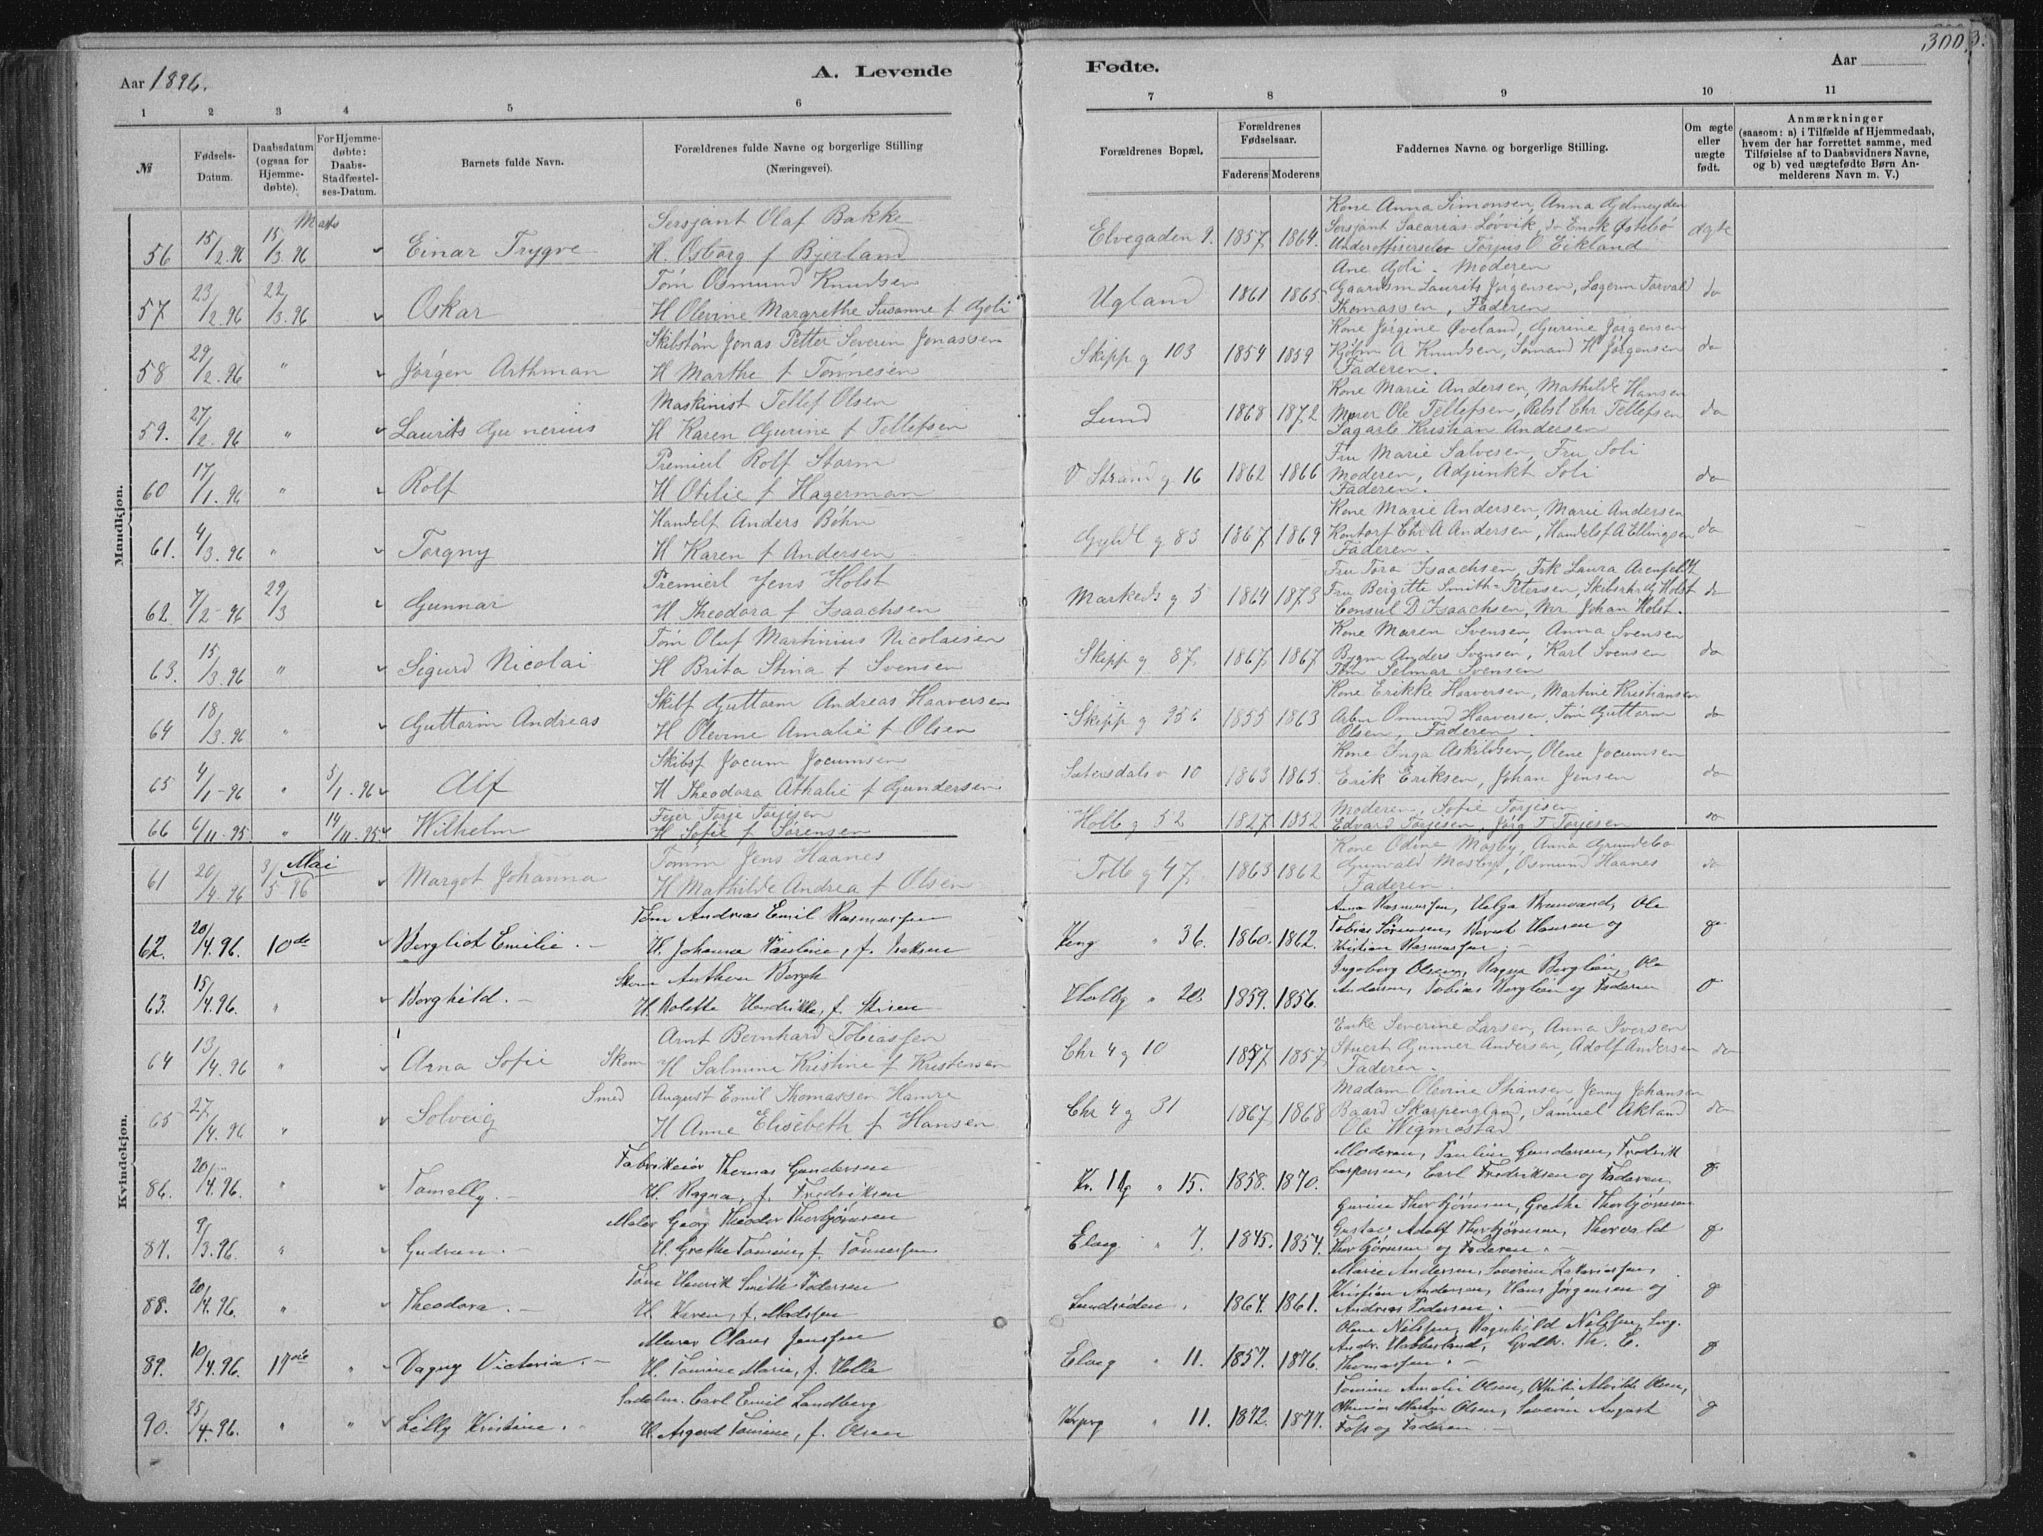 300
3.
Aar 1896.
A. Levende
Fødte.
Aar
1 2 3 4 5 6 7 8 9 10 11
№
Fødsels-Datum.
Daabsdatum (ogsaa for Hjemme-døbte).
For Hjemme-døbte: Daabs-Stadfæstel-ses-Datum.
Barnets fulde Navn.
Forældrenes fulde Navne og borgerlige Stilling (Næringsvei).
Forældrenes Bopæl.
Forældrenes Fødselsaar.
Faderens
Moderens
Faddernes Navne og borgerlige Stilling.
Om ægte eller uægte født.
Anmærkninger (saasom: a) i Tilfælde af Hjemmedaab, hvem der har forrettet samme, med Tilføielse af to Daabsvidners Navne, og b) ved uægtefødte Børn An-melderens Navn m. V.)
Mandkjøn.
Marts
56 15/2.96 15/3.96 Einar Trygve
Sersjant Olaf Bakke
H. Osborg f Bjerland
Elvegaden 9. 1857. 1864.
Kone Anna Simonsen, Anna Gjelmeyden
Sersjant Sacarias Løvvik, do Enok Østebø
Underofficerselev Torjus O Eikland
ægte
57 23/2.96 22/3.96 Oskar
Tøm Osmund Knudsen
H Olevine Margrethe Susanne f Gjoli
Ugland 1861 1865
Ane Gjoli. Moderen
Gaardsm Laurits Jørgensen, Lagerm Torvald
Thomassen, Faderen
do
58 29/2.96 " Jørgen Arthman
Skibstøm Jonas Petter Severin Jonassen
H Marthe f Tønnesen
Skipp g 103 1854 1859
Kone Jørgine Øveland, Gjurine Jørgensen
Kjøbm A Knudsen, Sømand H Jørgensen
Faderen.
do
59. 27/2.96 " Laurits Gunerius
Maskinist Tellef Olsen
H Karen Gjurine f Tellefsen
Lund 1868 1872
Kone Marie Andersen, Mathilde Hansen
Murer Ole Tellefsen, Rebsl Chr Tellefsen
Sagarb Kristian Andersen
do
60 17/1.96 " Rolf
Premierl Rolf Storm
H Otilie f Hagerman
V Strand g 16 1862 1866
Fru Marie Salvesen, Fru Soli
Moderen, Adjunkt Soli
Faderen.
do
61. 4/3.96 " Torgny
Handelf Anders Bøhn
H Karen f Andersen
Gyldl g 83 1867 1869
Kone Marie Andersen, Marie Andersen
Kontorf Chr A Andersen, Handelsf A Ellingsen
Faderen.
do
62 7/2-96 29/3 Gunnar
Premierl Jens Holst
H Theodora f Isaachsen
Markeds g 5 1864 1873
Fru Tora Isaachsen, Frk Laura Arenfeldt
Fru Bergitte Smith-Petersen, Skibsrhd Holst
Consul D Isaachsen, Johan Holst.
do
63. 15/3.96 " Sigurd Nicolai
Tøm Oluf Martinius Nicolaisen
H Brita Stina f Svensen
Skipp g 87. 1867 1867
Kone Maren Svensen, Anna Svensen
Bygm Anders Svensen, Karl Svensen
Tøm Selmar Svensen
do
64 18/3.96 " Guttorm Andreas
Skibf Guttorm Andreas Haaversen
H Olevine Amalie f Olsen
Skipp g 95 b 1855 1863
Kone Erikke Haaversen, Martine Kristiansen
Arbm Osmund Haaversen, Tøm Guttorm
Olsen, Faderen.
do
65 4/1-96 " 5/1.96 Alf
Skibsf Jocum Jocumsen
H Theodora Athalie f Gundersen
Setersdalsv 10 1863 1865.
Kone Inga Askildsen, Olene Jocumsen
Erik Eriksen, Johan Jensen
do
66 4/11.95. " 14/11.95. Wilhelm
Feier Torje Torjesen
H Sofie f Sørensen
Holb g 52 1827 1852
Moderen, Sofie Torjesen
Edvard Torjesen Jørg T Torjesen
do
Kvindekjøn.
Mai
61 20/4.96 3/5 96 Margot Johanna
Tømm Jens Haanes
H Mathilde Andrea f Olsen
Tolb g 47. 1863 1862
Kone Odine Mosby, Anna Grundebo
Grunvald Mosby, Osmund Haanes
Faderen.
do
62. 20/4.96. 10de Bergliot Emilie.
Tøm Andreas Emil Rasmussen
H. Johanna Pauline, f. Isaksen
Kong " 36. 1860. 1862.
Anna Rasmussen, Helga Brunvand, Ole
Tobias Sørensen, Bernt Hansen og
Kristian Rasmussen.
63. 15/4.96. " Borghild.
Skom Anthon Bergh
H. Bolette Hendrikke, f.
Holbg " 20. 1859. 1856.
Ingeborg Olsen, Ragna Berglien, Ole
Andersen, Tobias Berglien og Faderen
64 13/4.96 " Arna Sofie
Skom Arnt Bernhard Tobiassen
H Salmine Kristine f Kristensen
Chr 4 g 10 1857. 1857
Enke Severine Larsen, Anna Iversen
Stuert Gunner Andersen, Adolf Andersen
Faderen.
do
65 27/4.96 " Solveig
Smed August Emil Thomassen Hamre
H Anne Elisebeth f Hansen
Chr 4 g 31 1867 1868
Madam Olevine Spansen, Jenny Johansen
Baard Skarpengland, Samuel Akland
Ole Wigmostad
do
86. 20/4.96. " Tomelly.
Fabrikeier Thomas Gundersen
H. Ragna, f. Fredriksen
Kr. 11g " 15. 1858. 1870.
Moderen, Pauline Gundersen, Fredrik
Caspersen, Carl Fredriksen og Faderen
87. 9/3.96. " Gudrun.
Maler Georg Theodor Thorbjørnsen
H. Grethe Tomine, f. Tønnessen
Elveg " 7. 1845. 1854.
Gurine Thorbjørnsen, Grethe Thorbjørnsen
Gustav Adolf Thorbjørnsen, Thorvald
Thorbjørnsen og Faderen.
88. 20/4.96. " Theodora.
Tøm Henrik Smith Pedersen
H. Karen, f. Madssen
Lundsiden. 1864. 1861.
Marie Andersen, Severine Zakariassen,
Kristian Andersen, Hans Jørgensen og
Andreas Pedersen.
89. 10/4.96. 17de " Dagny Victoria.
Murer Olaus Jenssen
H. Tomine Marie, f. Holle
Elveg " 11. 1857. 1876.
Olene Nilssen, Ragnhild Nilssen,
Andr. Habberland, Th. E.
Thomassen.
90. 25/4.96. " " Lilly Kristine.
Sadelm. Carl Emil Landberg
H. Asgerd Tomine, f. Olsen
" 11. 1872. 1877.
Tomine Amalie Olsen, Othilie Alvilde Olsen,
Martin Olsen, Severin August
Foss og Faderen.